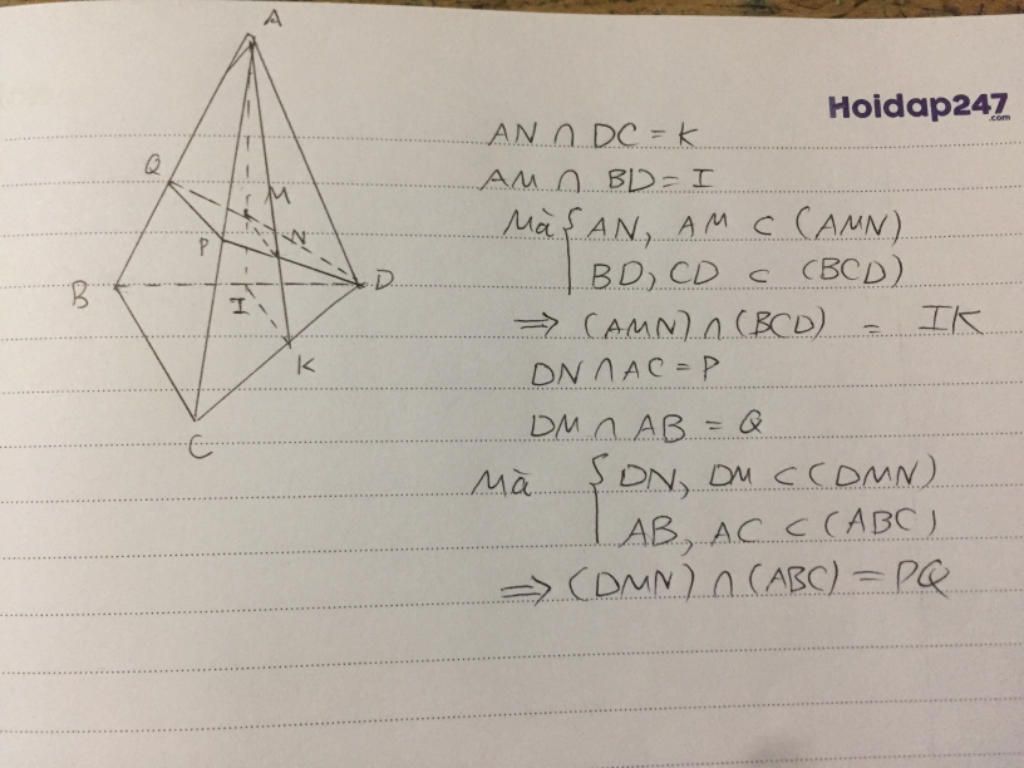 A
Hoidap247
.com
AN ∩ DC = K
Q
AM ∩ BD = I
M
Mà { AN, AM ⊂ (AMN)
P
N
BD, CD ⊂ (BCD)
B
I
D
⇒ (AMN) ∩ (BCD) = IK
K
DN ∩ AC = P
C
DM ∩ AB = Q
Mà { DN, DM ⊂ (DMN)
AB, AC ⊂ (ABC)
⇒ (DMN) ∩ (ABC) = PQ